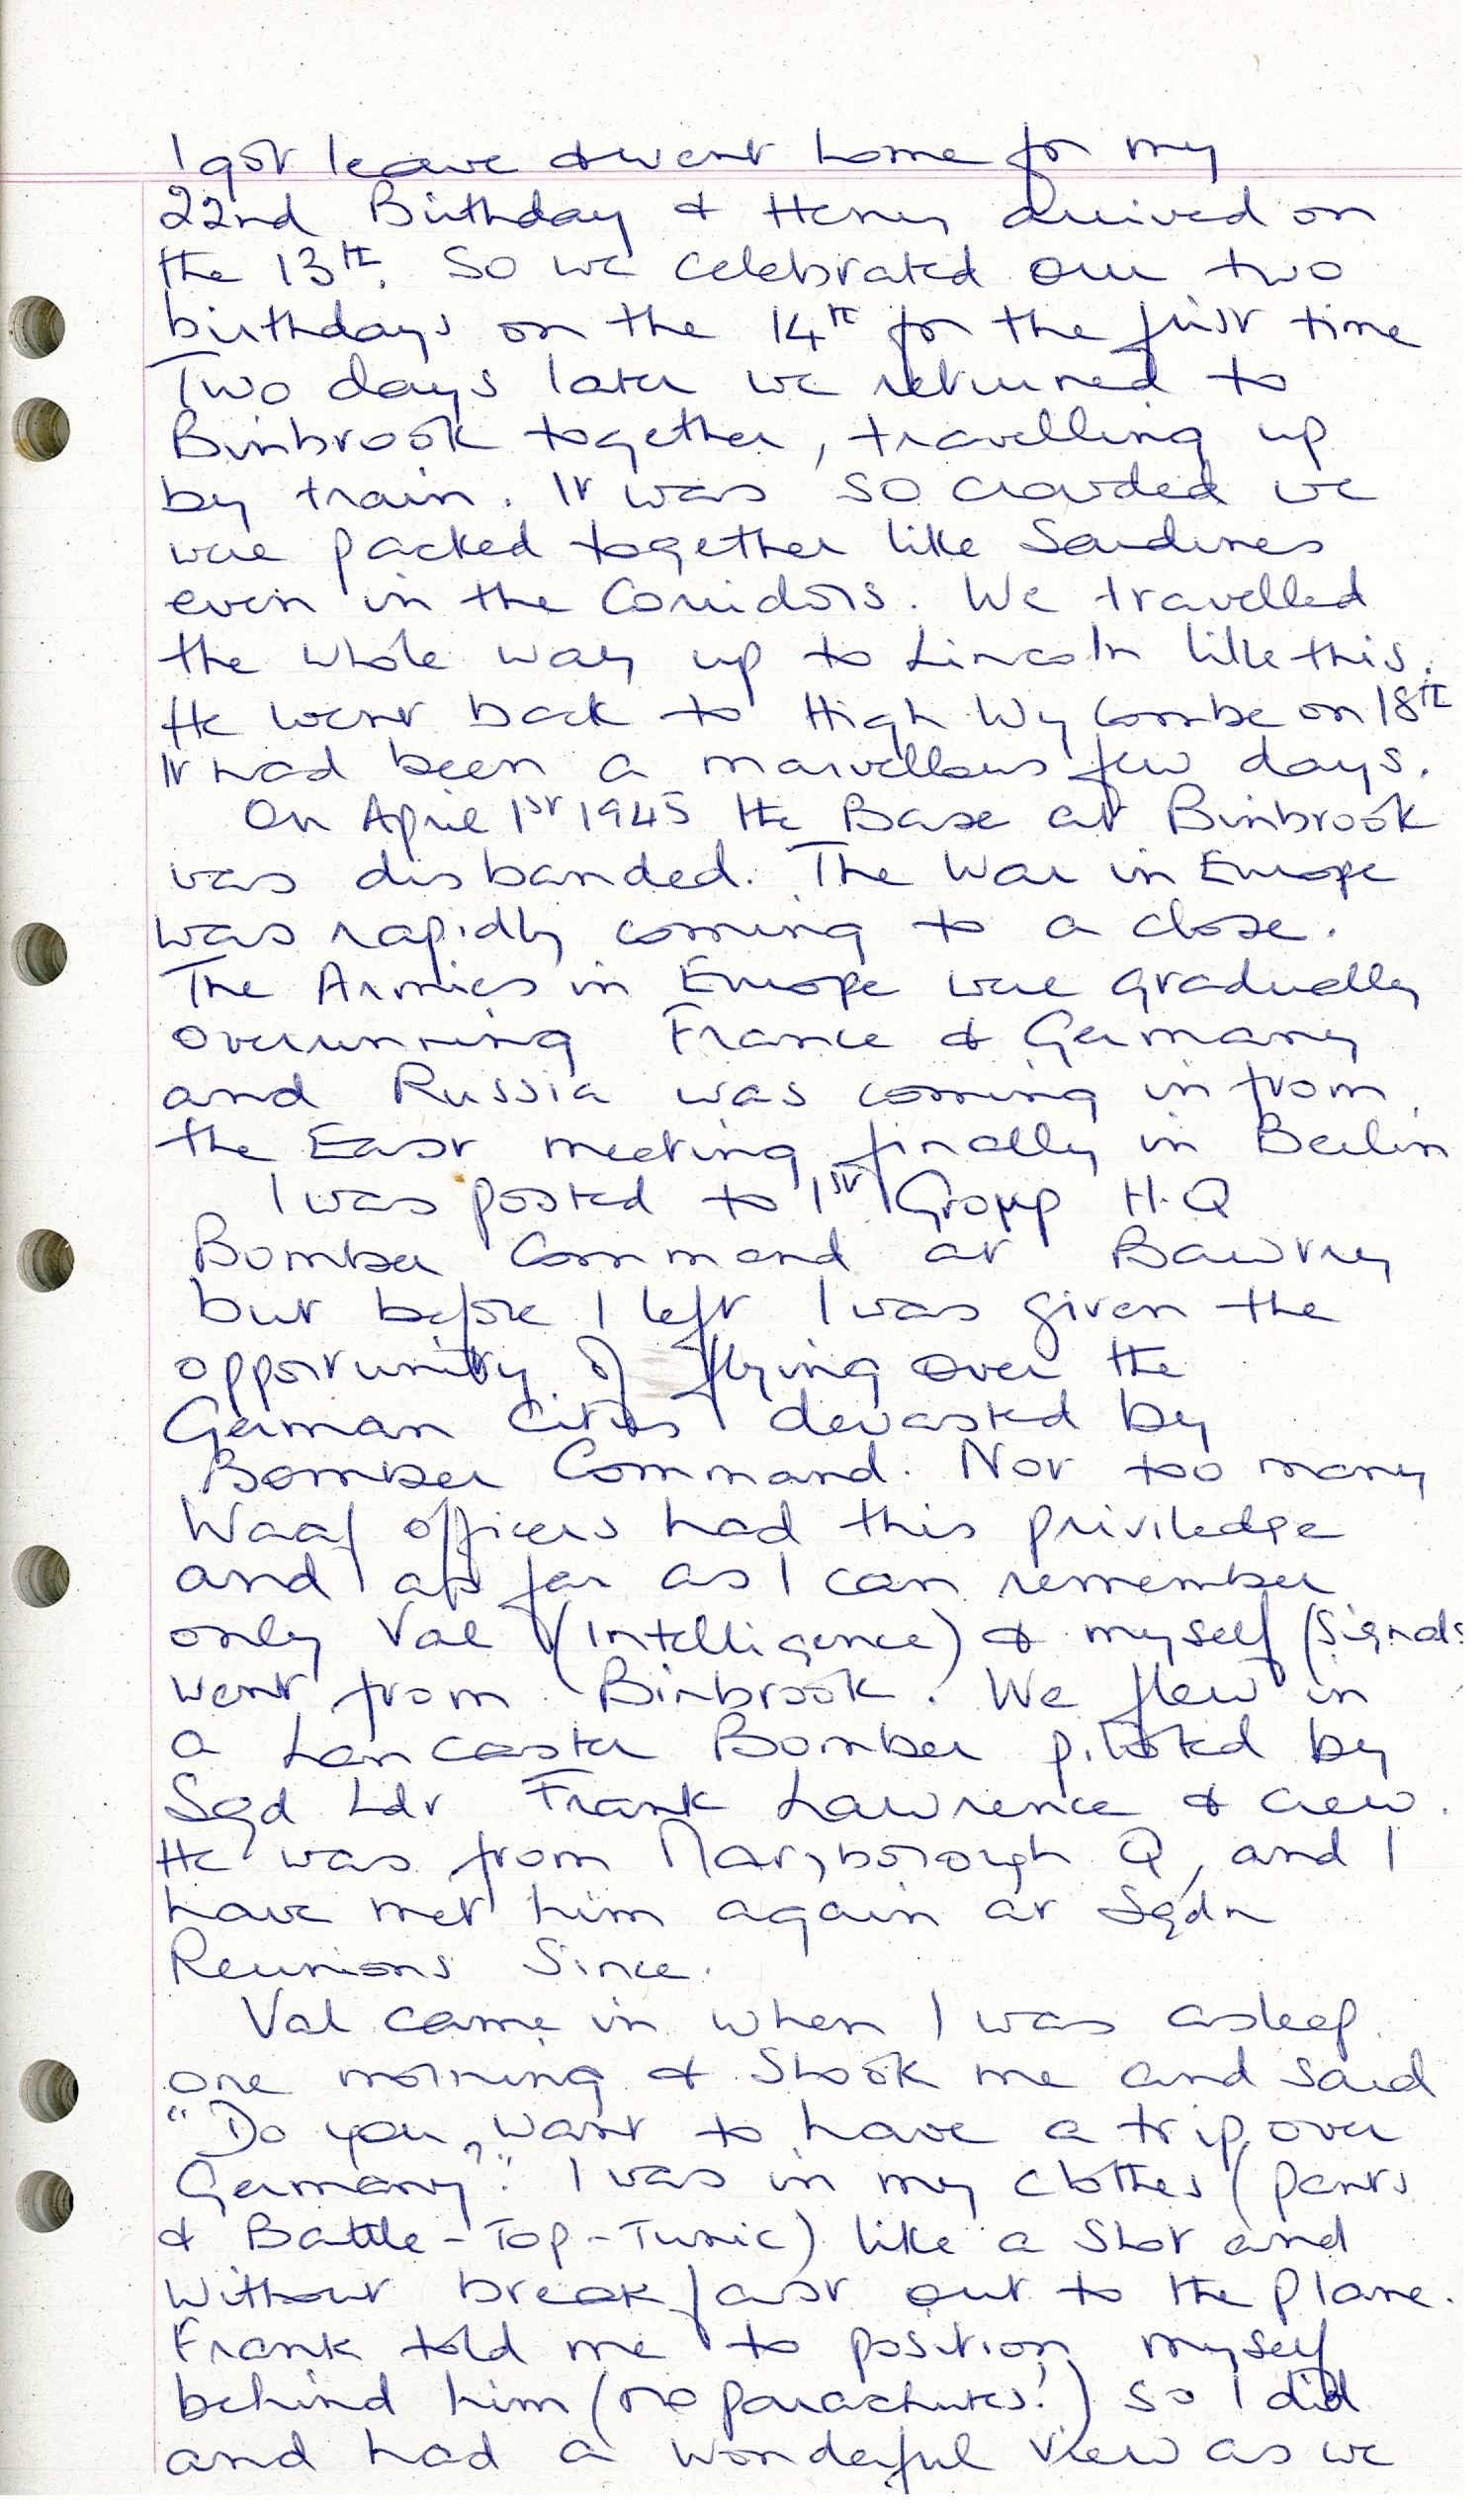 I got leave & went home for my
22nd Birthday & Henry arrived on
the 13th. So we celebrated our two
birthdays on the 14th for the first time
Two days later we returned to
Binbrook together, travelling up
by train. It was so crowded we
were packed together like Sardines
even in the Corridors. We travelled
the whole way up to Lincoln like this.
He went back to High Wycombe on 18th
It had been a marvellous few days.
On April 1st 1945 the Base at Binbrook
was disbanded. The War in Europe
was rapidly coming to a close.
The Armies in Europe were gradually
overrunning France & Germany
and Russia was coming in from
the East meeting finally in Berlin
I was posted to 1st Group H.Q
Bomber Command at Bawtry
but before I left I was given the
opportunity of flying over the
German Cities devasted by
Bomber Command. Not too many
Waaf officers had this priviledge
and as far as I can remember
only Val (Intelligence) & myself (Signals
went from Binbrook. We flew in
a Lancaster Bomber piloted by
Sqd Ldr Frank Lawrence & crew.
He was from Maryborough Q, and I
have met him again at Sqdn
Reunions Since.
Val came in when I was asleep
one morning & Shook me and said
"Do you want to have a trip over
Germany?". I was in my clothes (pants
& Battle-Top-Tunic) like a Shot and
without breakfast out to the plane.
Frank told me to position myself
behind him (no parachutes!) so I did
and had a wonderful view as we